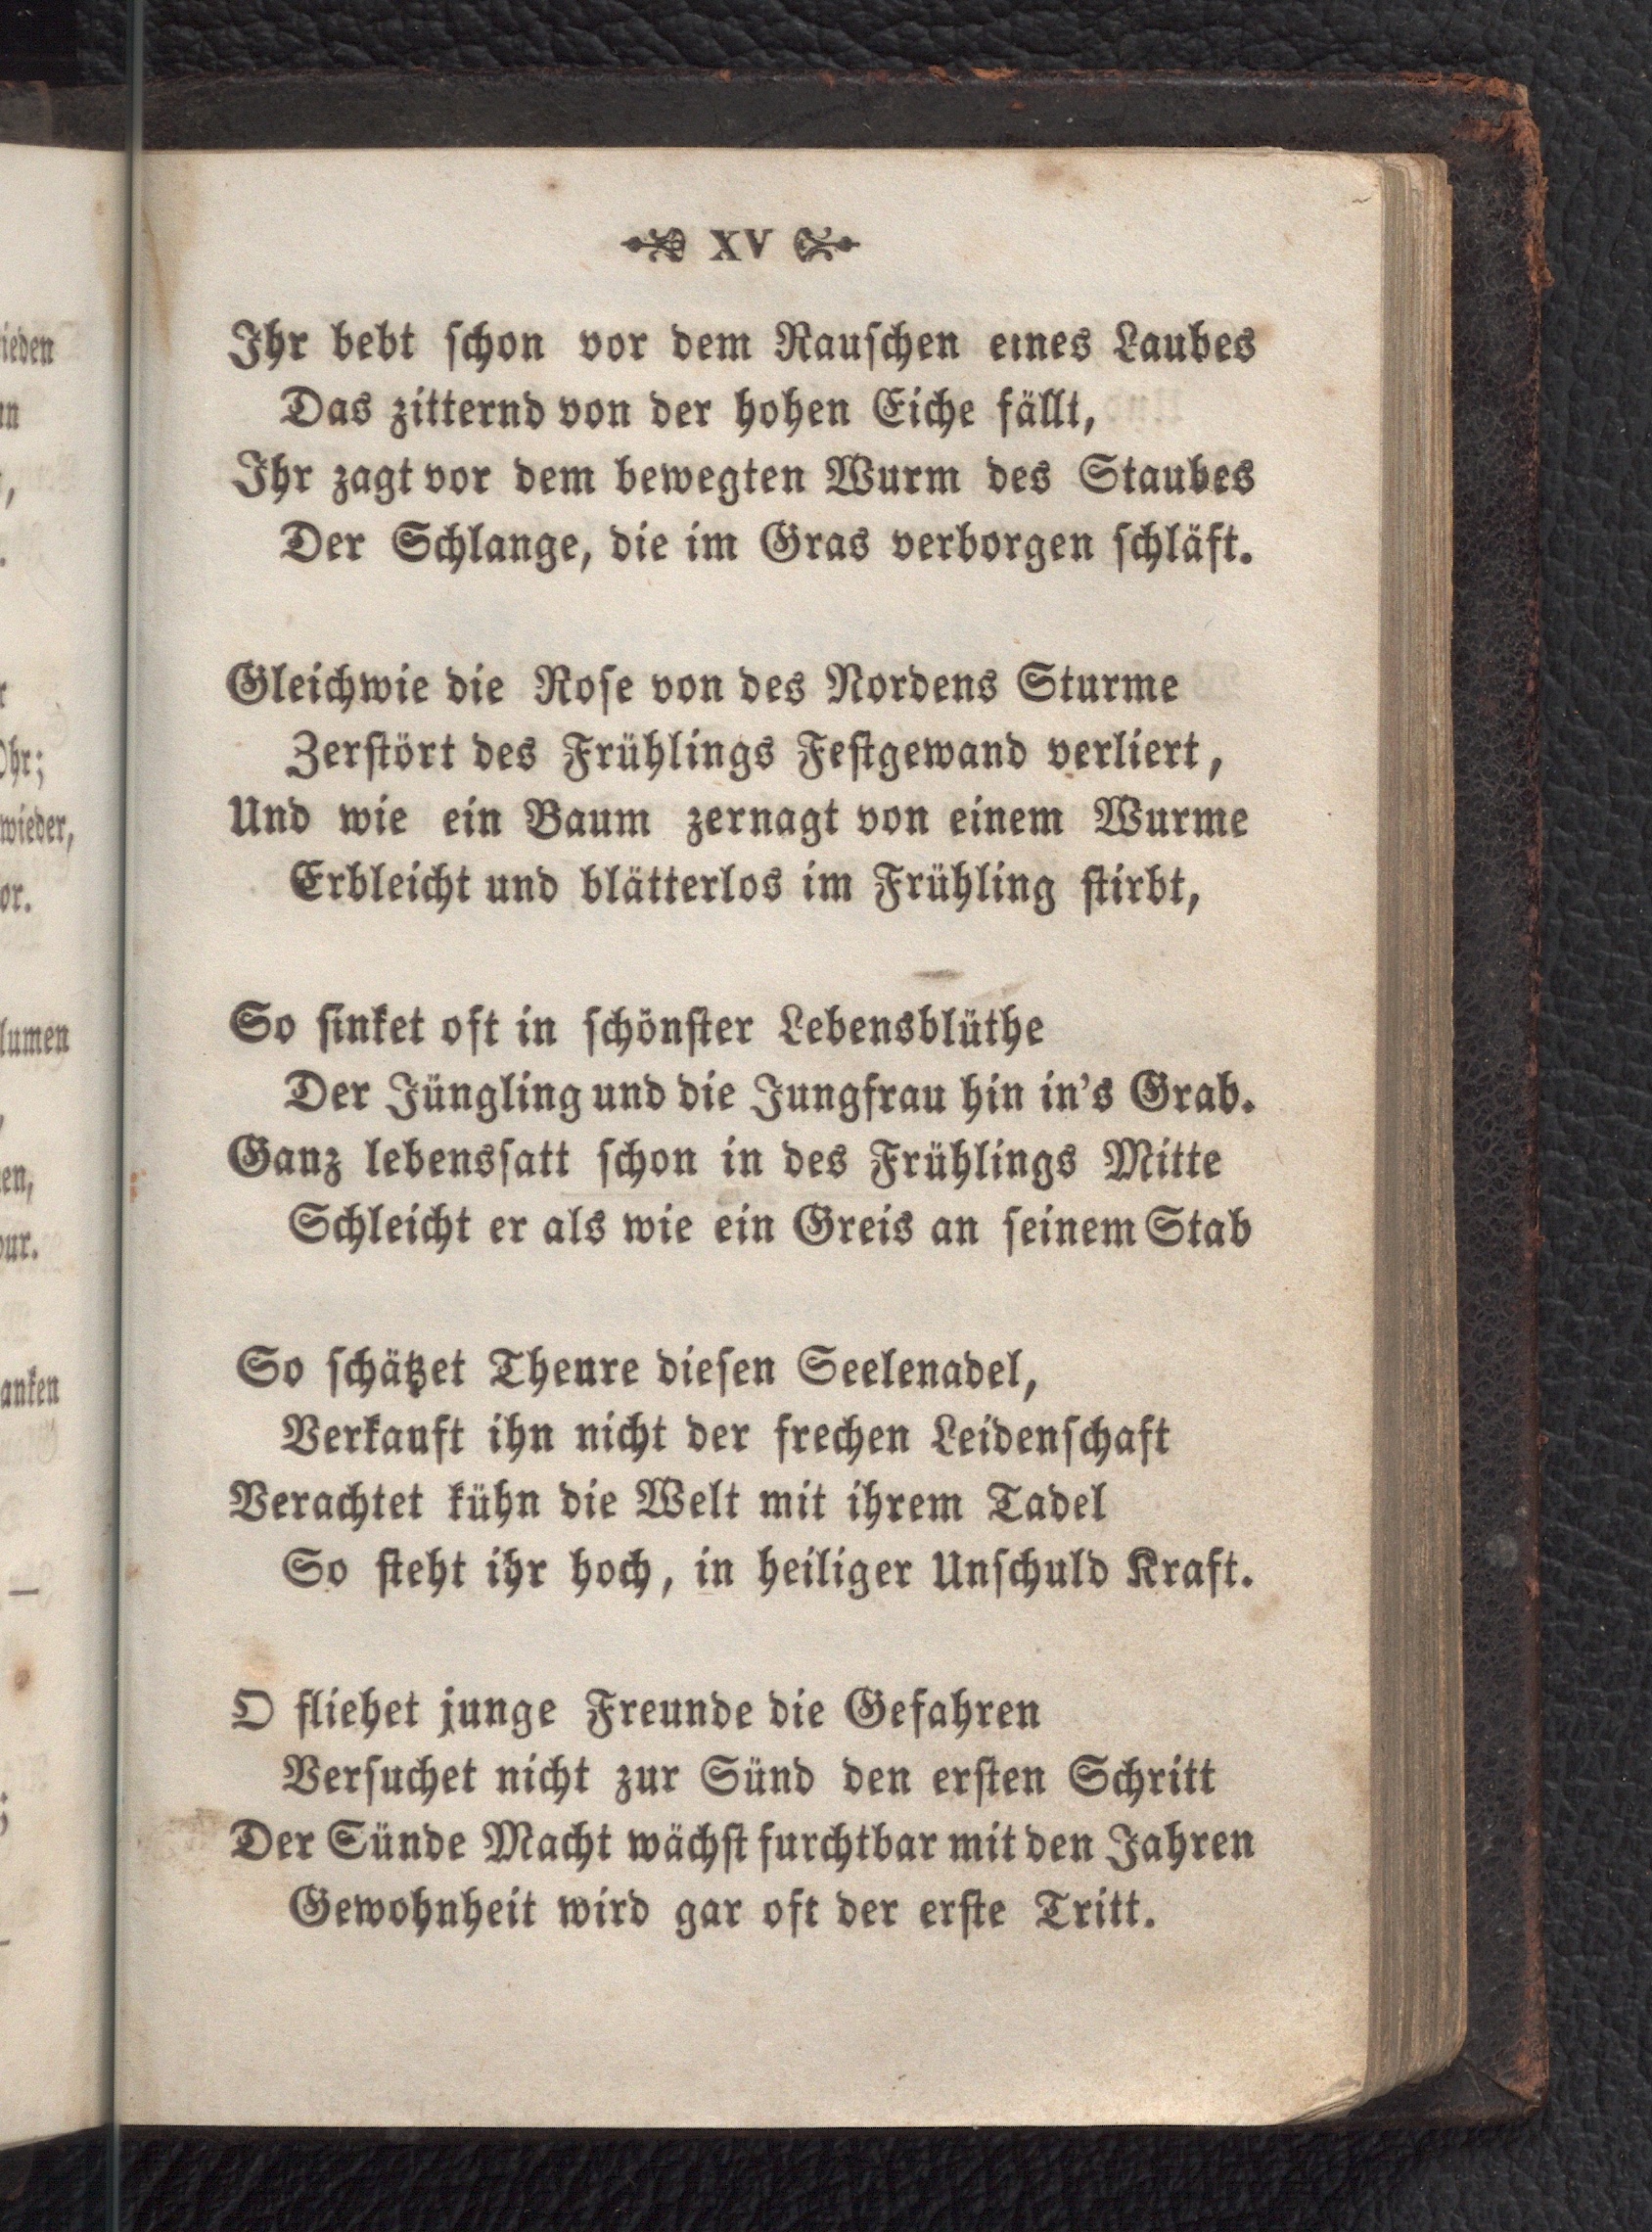 XV
Ihr bebt schon vor dem Rauschen eines Laubes
Das zitternd von der hohen Eiche fällt,
Ihr zagt vor dem bewegten Wurm des Staubes
Der Schlange, die im Gras verborgen schläft.
Gleichwie die Rose von des Nordens Sturme
Zerstört des Frühlings Festgewand verliert,
Und wie ein Baum zernagt von einem Wurme
Erbleicht und blätterlos im Frühling stirbt,
So sinket oft in schönster Lebensblüthe
Der Jüngling und die Jungfrau hin in's Grab.
Ganz lebenssatt schon in des Frühlings Mitte
Schleicht er als wie ein Greis an seinem Stab
So schätzet Theure diesen Seelenadel,
Verkauft ihn nicht der frechen Leidenschaft
Verachtet kühn die Welt mit ihrem Tadel
So steht ihr hoch, in heiliger Unschuld Kraft.
O fliehet junge Freunde die Gefahren
Versuchet nicht zur Sünd den ersten Schritt
Der Sünde Macht wächst furchtbar mit den Jahren
Gewohnheit wird gar oft der erste Tritt.